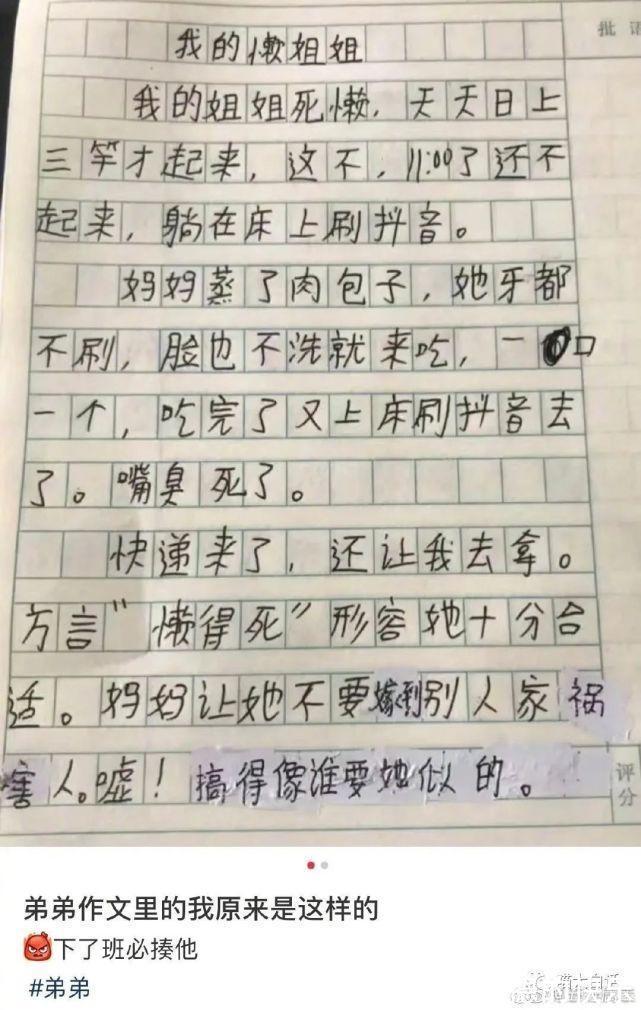 批
我的懒姐姐
我的姐姐死懒，天天日上
三竿才起来，这不，11:00了还不
起来，躺在床上刷抖音。
妈妈蒸了肉包子，她牙都
不刷，脸也不洗就来吃，一口
一个，吃完了又上床刷抖音去
了。嘴臭死了。
快递来了，还让我去拿。
方言“懒得死”形容她十分合
适。妈妈让她不要嫁到别人家祸
害人。嘘！搞得像谁要她似的。
评
分
弟弟作文里的我原来是这样的
下了班必揍他
#弟弟